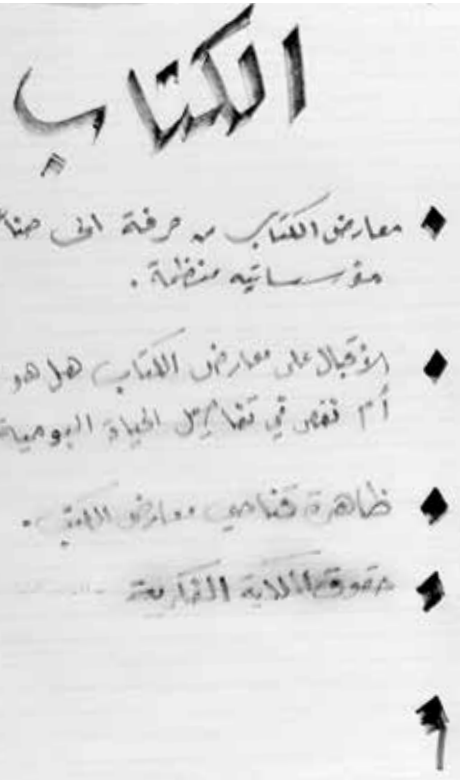 الكتاب
معارض الكتاب من حرفة الى
مؤسساتيه منظمة .
الاقبال على معارض الكتاب هل هو
أم نقص في تفاصيل الحياة اليومية
ظاهرة تنامي معارض الكتب .
حقوق الملكية الفكرية